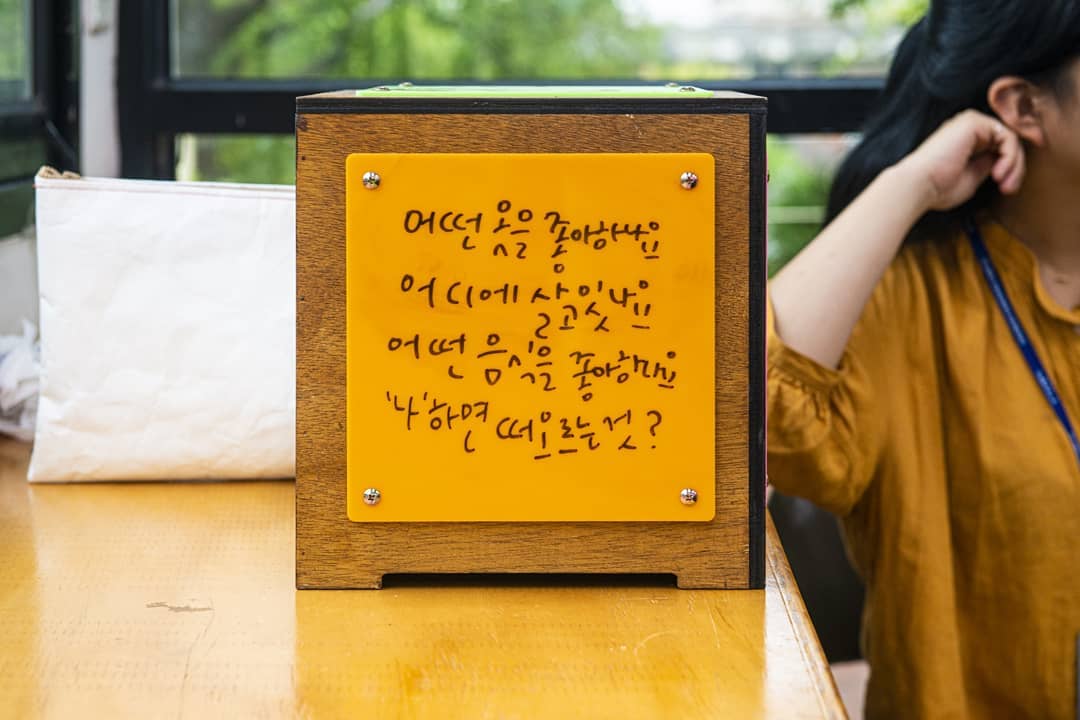 어떤 옷을 좋아하나요
어디에 살고있나요
어떤 음식을 좋아하나요
'나'하면 떠오르는것?